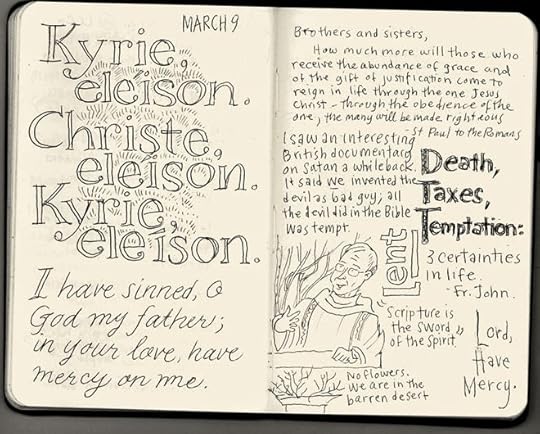 MARCH 9
Kyrie,
eleison.
Christe,
eleison.
Kyrie,
eleison.
I have sinned, O
God my father;
in your love, have
mercy on me.
Brothers and sisters,
How much more will those who
receive the abundance of grace and
of the gift of justification come to
reign in life through the one Jesus
Christ - through the obedience of the
one, the many will be made righteous
- St Paul to the Romans
I saw an interesting
British documentary
on Satan a while back.
It said we invented the
devil as bad guy; all
the devil did in the Bible
was tempt.
Death,
Taxes,
Temptation:
3 certainties
in life.
- Fr. John.
Lent
"Scripture is
the sword
of the Spirit"
Lord,
Have
Mercy.
No flowers.
We are in the
barren desert